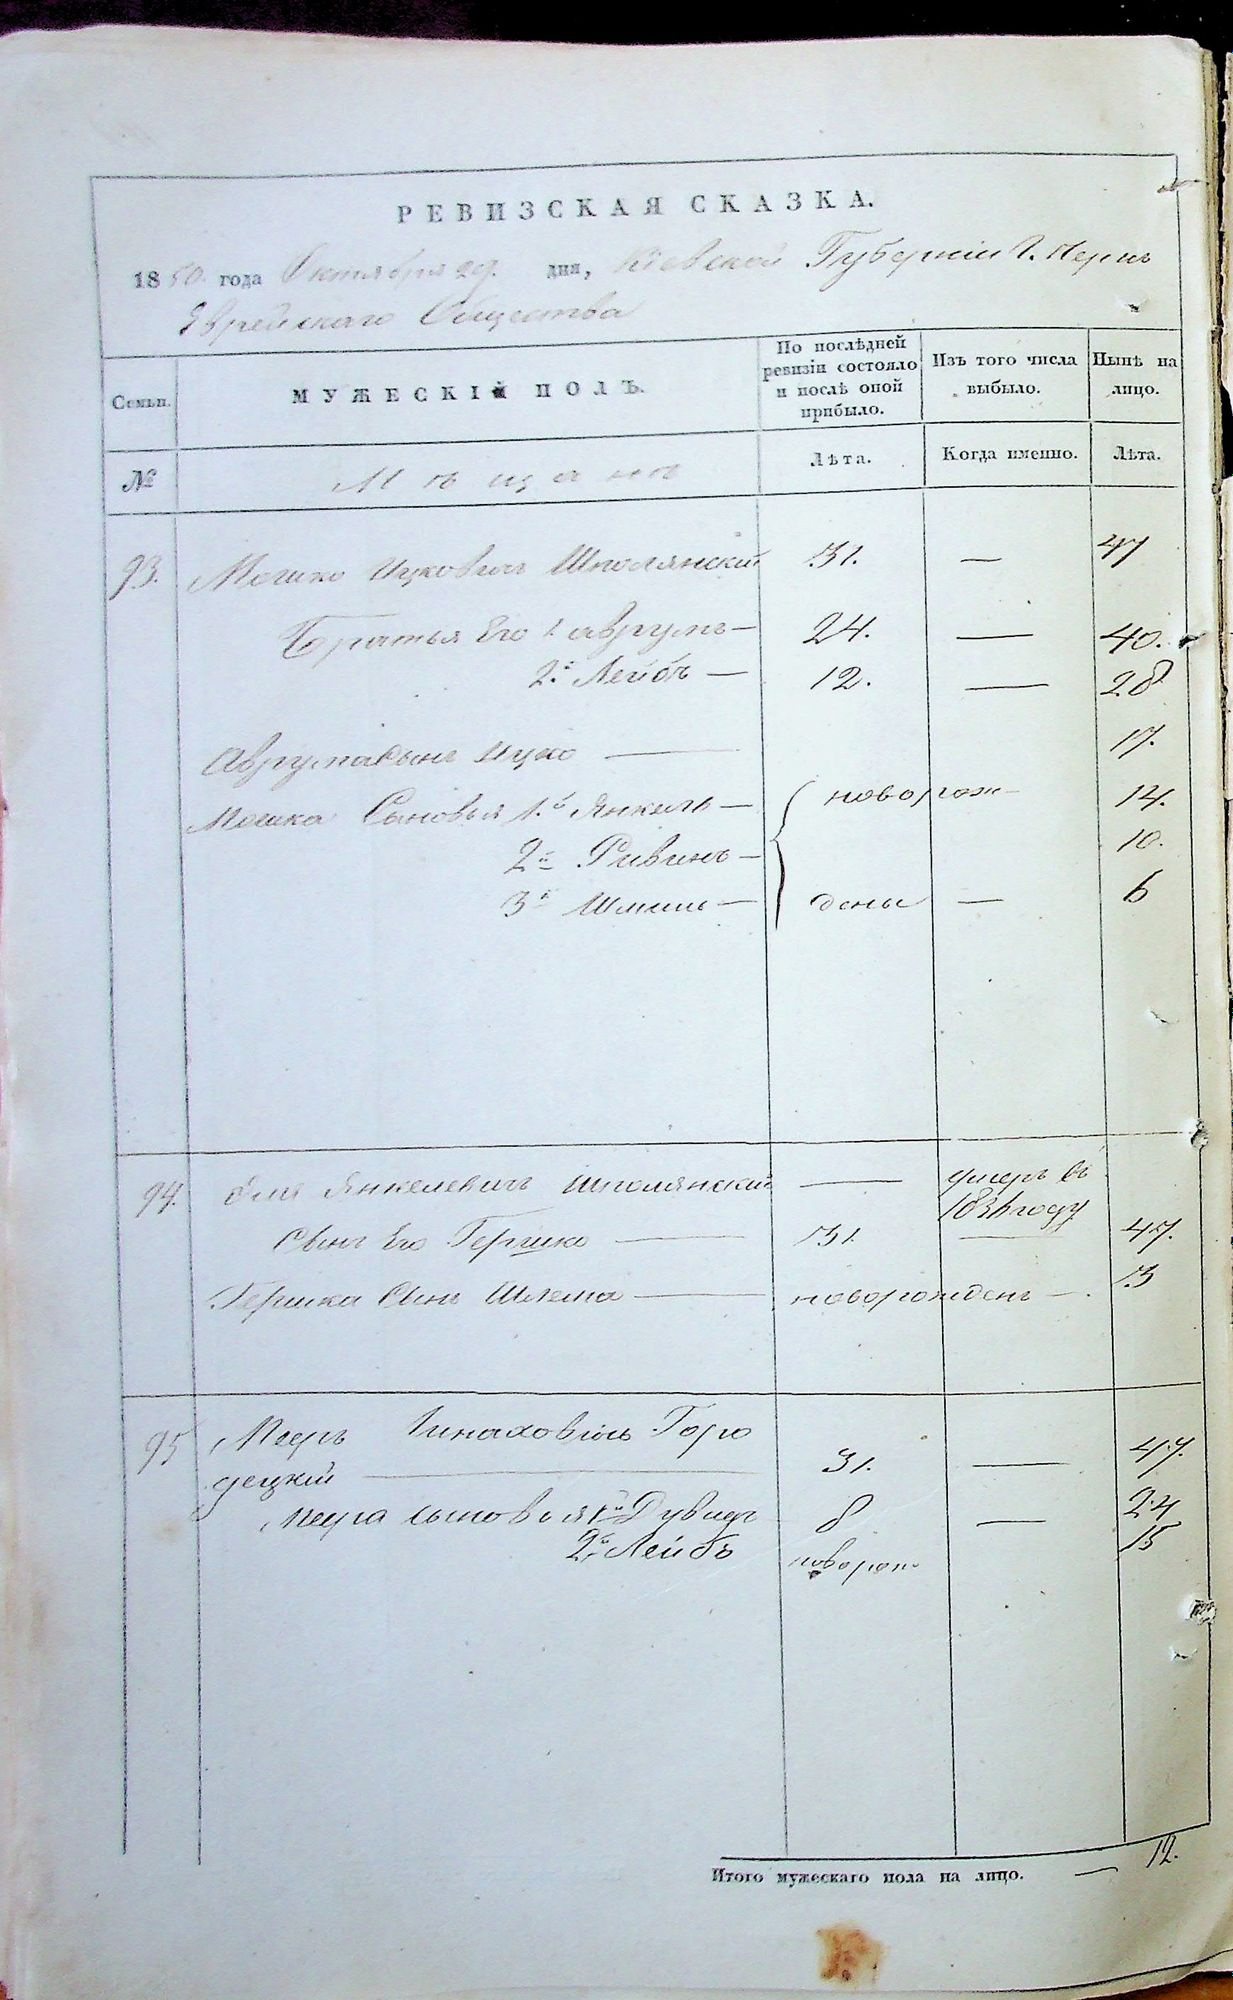 РЕВИЗСКАЯ СКАЗКА.
1850. года Октября 29. дня, Кіевской Губерніи
Еврейскаго Общества
Семьи. МУЖЕСКІЙ ПОЛЪ. По послѣдней ревизіи состояло и послѣ оной прибыло. Изъ того числа выбыло. Нынѣ на лицо.
№ Мѣщанъ Лѣта. Когда именно. Лѣта.
93. Мошко Ицковичъ Шполянскій 31. — 47
Братья Его 1 Аврумъ — 24. — 40.
2.й Лейбъ — 12. — 28
Аврума Сынъ Ицко — 17.
Мошка Сыновья 1.й Янкель — новорож- 14.
2й Рывинъ — 10.
3й Шмиль — дены — 6
94. Янкелевичъ Шполянскій — умеръ въ
1836 году
Сынъ Его Гершко — 31. — 47.
Гершка Сынъ Шлема — новорожденъ —. 13
95 Мееръ Пинаховичъ Горо
децкій — 31. — 47.
Меера сыновья 1й Дувидъ 8 — 24
2.й Лейбъ новорож. 15
Итого мужескаго пола на лицо. — 12.